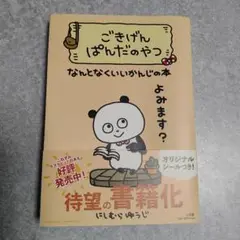 ごきげん
ぱんだのやつ
なんとなくいいかんじの本
よみます?
好評
発売中!
オリジナル
シールつき!
待望の書籍化
にしむらゆうじ